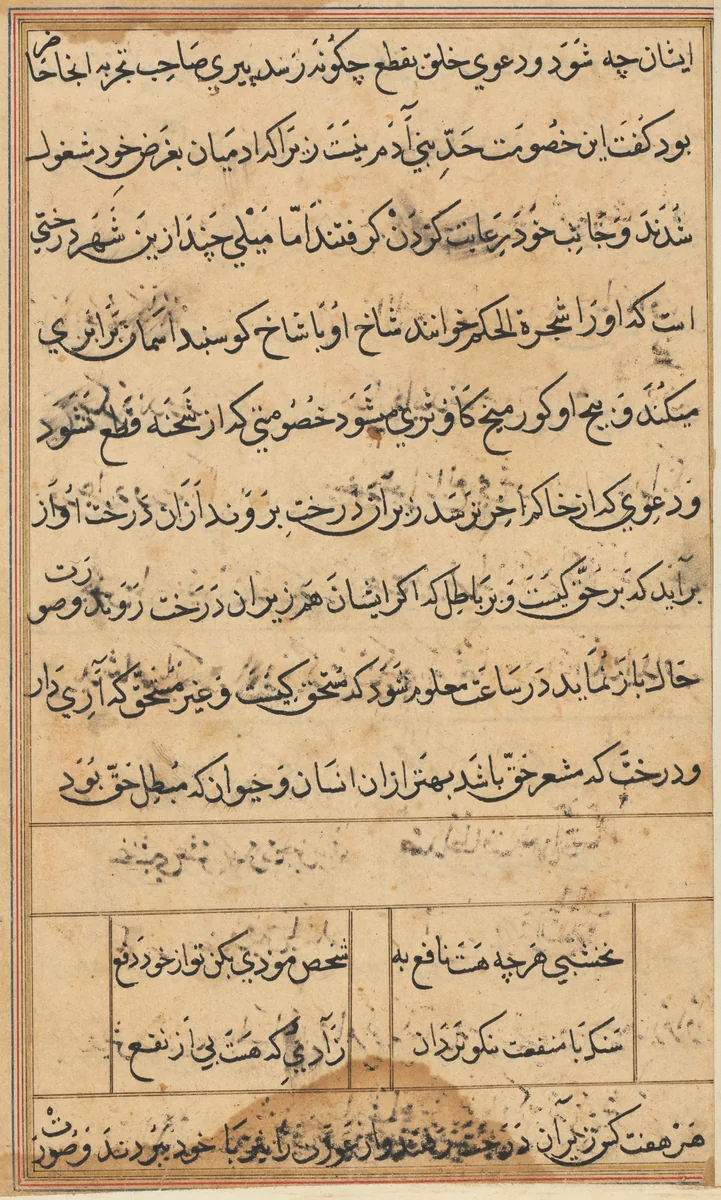 ایشان چه شَوَد و دعوي خلق بقطع چکونَه رَسد پیري صَاحِب تجربه انجا حَاضر
بود کُفتَ این خصُومَت حَدِّ بَني آدَم نیسَتَ زیَراکه ادمیَان بغَرَض خودِ مشغول
شُدَند وَ جَانِب خَودَ رِعَایت کَردَنْ کرفتند اَمّا مَیْلي چَند اَزین شَهر دَرختي
است که اورَا شجرة الحکم خوانند شاخ اوُ بَا شاخ کوسبند اسمان بَرابَري
میکنَد وَ بیخ او کور میخ کاو ثري میشَوَد خصُومتي که از شَحنَه قَطع نشَوَد
وَ دعوي که از حاکم اخِر نرسَد زیر ان دَرخت بِرَوند اَزان دَرَخت اَواَز
براید که بَر حَقّ کیسَت وَ بر بَاطِل که اکر ایشانَ هَم زیر ان دَرَخت رَوَند وَ صورَت
حَال بَاز نمَایَد دَر سَاعَت معلوم شوَد که مُستحق کیست وَ غیر مستحقّ که آرِي دَار
و درخت که مشعر حَقّ باشَد بهتَر از ان انسَان وَ حیوان که مُبطِل حَقّ بوَد
نخشبي هَرچه هَستَ نافع به
شخص موذي بکن تو از خود دفع
سَنکِ بَا منفعت نکوتر دَان
زآدمي که هَستَ بي اَز نفع
هَر هفت کس زیر آن دَرَخت رَفتند و ان عَورَت را نیز بَا خود ببُردند وَ صُورَت